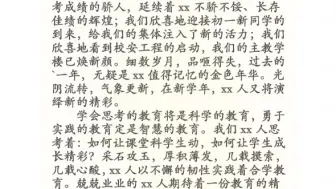 考成绩的骄人，延续着 xx 不骄不馁、长存
佳绩的辉煌；我们欣喜地迎接初一新同学的
到来，给我们的集体注入了新的活力；我们
欣喜地看到校安工程的启动，我们的主教学
楼已焕新颜。细数岁月，品咂得失，过去的
`一年，无疑是 xx 值得记忆的金色年华。光
阴流转，气象更新，在新学年，xx 人又将演
绎新的精彩。
学会思考的教育将是科学的教育，勇于
实践的教育定是智慧的教育。我们 xx 人思
考着：如何让课堂科学生动，如何让学生成
长精彩？采石攻玉，厚积薄发，几载摸索，
几载心酸，xx 人以不懈的韧性实践着合学教
育。兢兢业业的 xx 人期待着一份教育的精